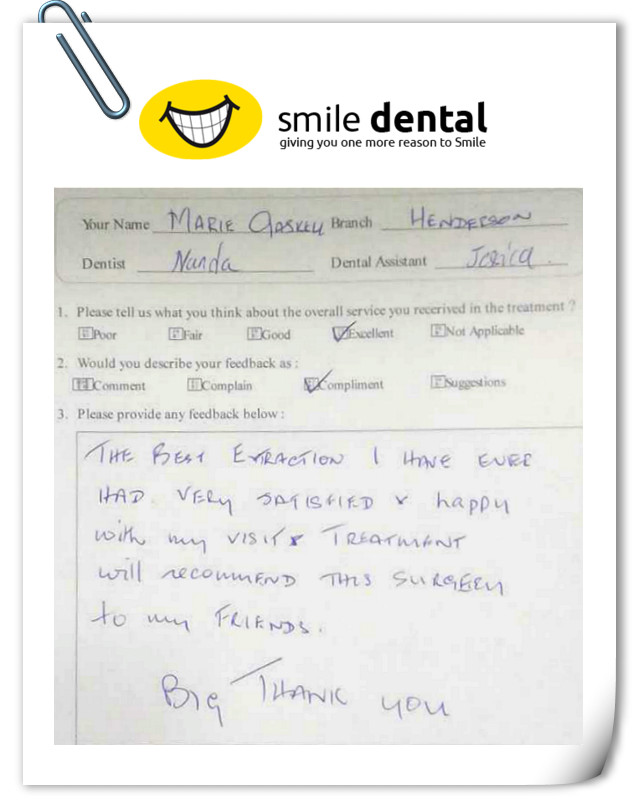 smile dental
giving you one more reason to Smile
Your Name MARIE Branch HENDERSON
Dentist Nanda Dental Assistant
1. Please tell us what you think about the overall service you recerived in the treatment ?
Poor Fair Good Excellent Not Applicable
2. Would you describe your feedback as :
Comment Complain Compliment Suggestions
3. Please provide any feedback below :
THE BEST EXTRACTION I HAVE EVER
HAD. VERY SATISFIED & happy
with my VISIT & TREATMENT
will recommend THIS SURGERY
to my FRIENDS.
Big THANK YOU